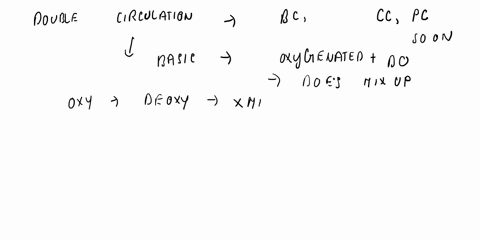 DOUBLE CIRCULATION → BC, CC, PC
SOON
↓ BASIC → OXYGENATED + DO
→ DOES MIX UP
OXY → DEOXY → XMI